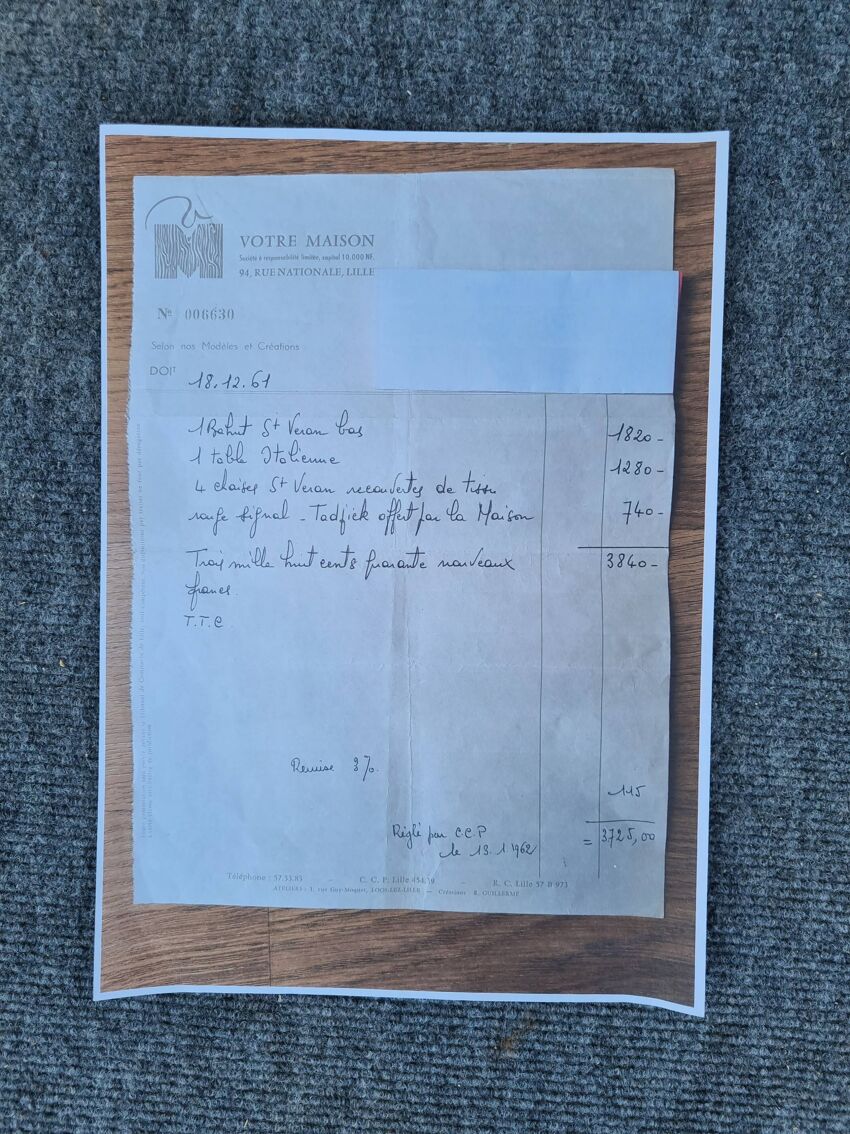 VOTRE MAISON
Société à responsabilité limitée, capital 10.000 NF.
94, RUE NATIONALE, LILLE
Nº 006630
Selon nos Modèles et Créations
DOIT
18.12.61
1 Bahut St Veran bas 1820-
1 table Italienne 1280-
4 chaises St Veran recouvertes de tissu
rouge signal - offert par la Maison 740-
Trois mille huit cents quarante nouveaux 3840-
francs.
T.T.C
Remise 3%.
115
Réglé par C.C.P = 3725,00
le 13.1.1962
Téléphone : 57.33.85 - C. C. P. Lille - R. C. Lille 57 B 973
ATELIERS : 3, rue Guy-Moquet, LOOS-LEZ-LILLE — Créations R. GUILLERME